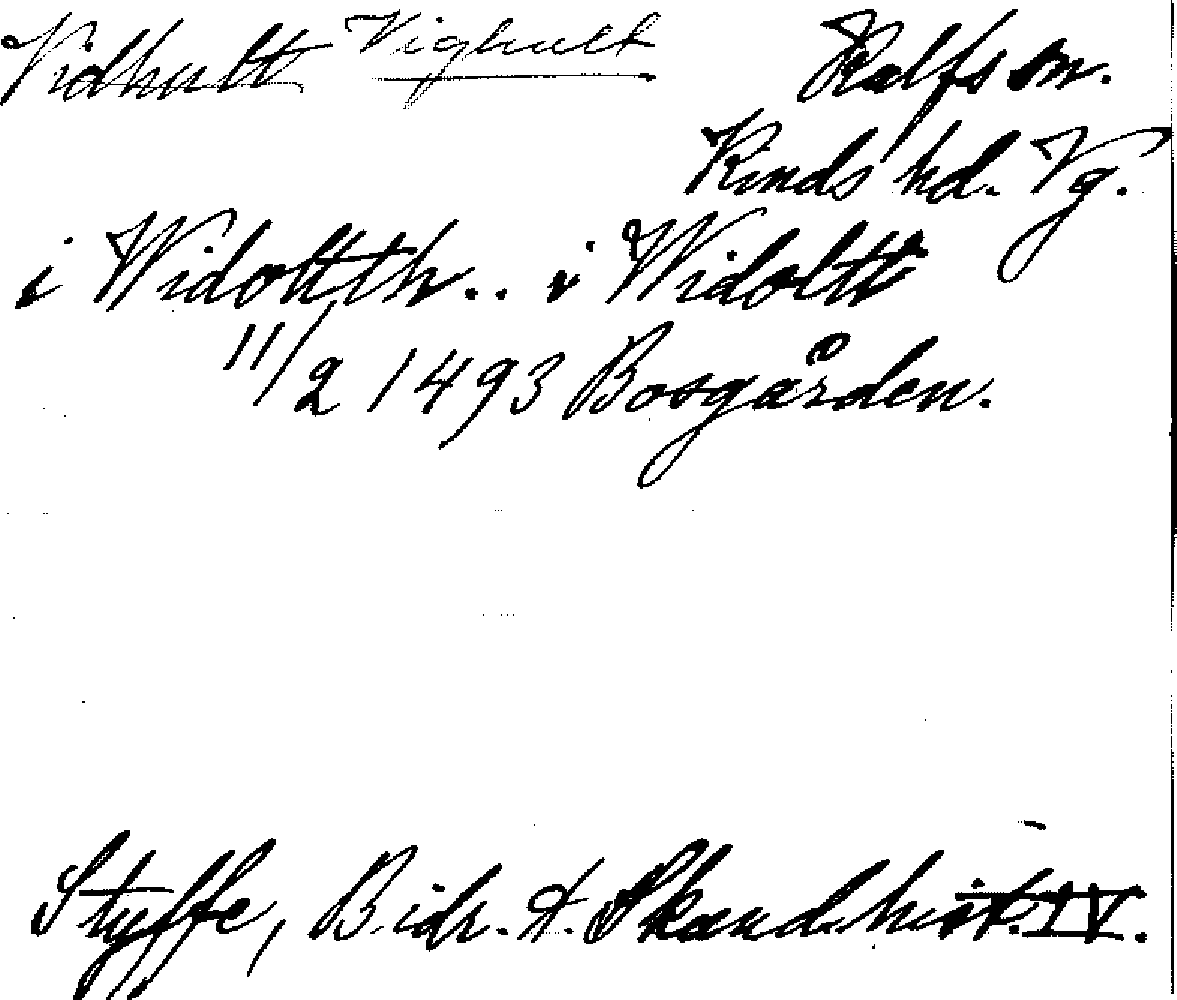 Vidhult Vighult Kalfs sn.
Kinds hd. Vg.
i Widoltth.. i Widoltt
11/2 1493 Bosgården.
Styffe, Bidr. t. Skand. hist. IV.